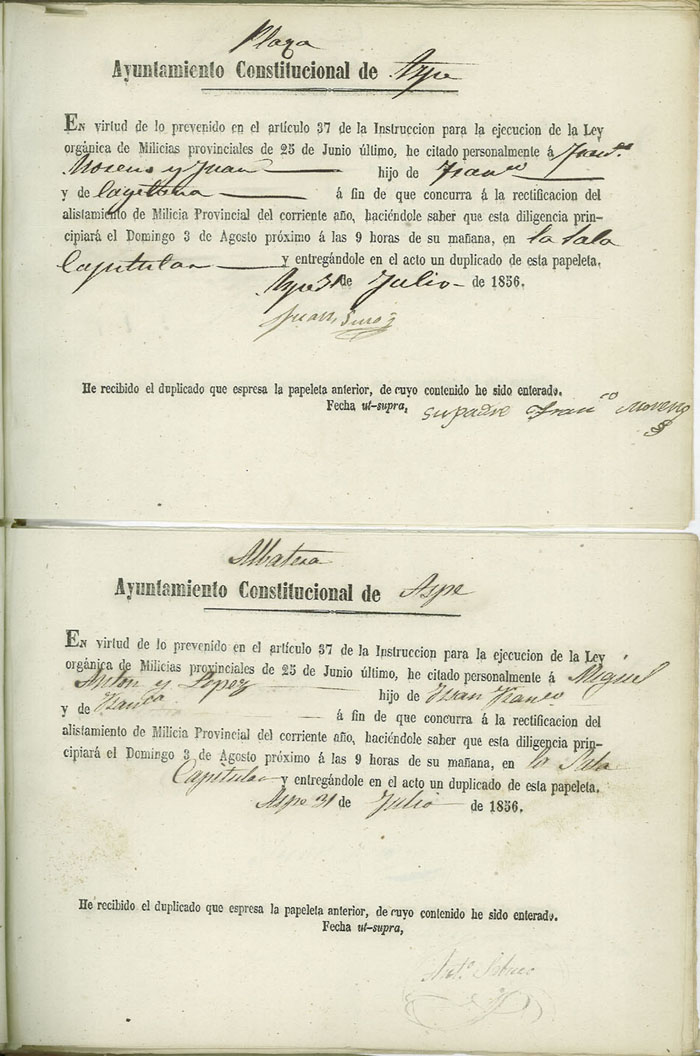 Plaza
Ayuntamiento Constitucional de Aspe
En virtud de lo prevenido en el artículo 37 de la Instruccion para la ejecucion de la Ley
orgánica de Milicias provinciales de 25 de Junio último, he citado personalmente á
Moreno y Juan hijo de Franco
y de Cayettana á fin de que concurra á la rectificacion del
alistamiento de Milicia Provincial del corriente año, haciéndole saber que esta diligencia prin-
cipiará el Domingo 3 de Agosto próximo á las 9 horas de su mañana, en la Sala
Capitular y entregándole en el acto un duplicado de esta papeleta.
Aspe 31 de Julio de 1856.
Juan
He recibido el duplicado que espresa la papeleta anterior, de cuyo contenido he sido enterado.
Fecha ut-supra, su padre Franco Moreno
Albatera
Ayuntamiento Constitucional de Aspe
En virtud de lo prevenido en el artículo 37 de la Instruccion para la ejecucion de la Ley
orgánica de Milicias provinciales de 25 de Junio último, he citado personalmente á Miguel
Anton y Lopez hijo de Juan Franco
y de Franca á fin de que concurra á la rectificacion del
alistamiento de Milicia Provincial del corriente año, haciéndole saber que esta diligencia prin-
cipiará el Domingo 3 de Agosto próximo á las 9 horas de su mañana, en la Sala
Capitular y entregándole en el acto un duplicado de esta papeleta.
Aspe 31 de Julio de 1856.
He recibido el duplicado que espresa la papeleta anterior, de cuyo contenido he sido enterado.
Fecha ut-supra,
Anto.